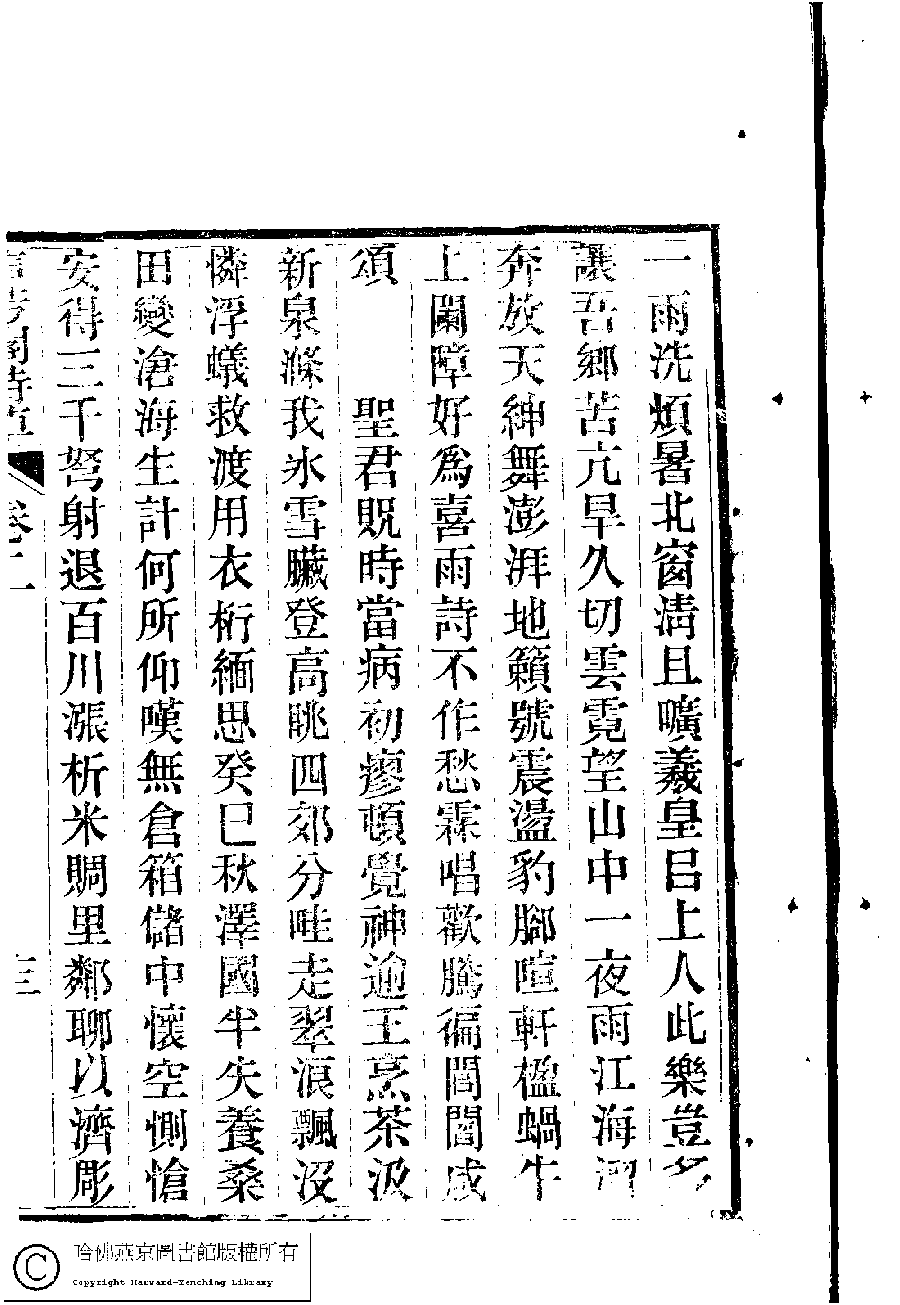 一雨洗煩暑北窗清且曠羲皇吕上人此樂豈多
讓吾鄉苦亢旱久切雲霓望山中一夜雨江海河
奔放天紳舞澎湃地籟號震盪豹腳喧軒楹蝸牛
上闌障好為喜雨詩不作愁霖唱歡騰徧閭閻成
頌　聖君貺時當病初瘳頓覺神逾王烹茶汲
新泉滌我氷雪臟登高眺四郊分畦走翠浪飄沒
憐浮蟻救渡用衣桁緬思癸巳秋澤國半失養桑
田變滄海生計何所仰嘆無倉箱儲中懷空惻愴
安得三千弩射退百川漲析米賙里鄰聊以濟彫
卷二
三
哈佛燕京圖書館版權所有
Copyright Harvard-Yenching Library